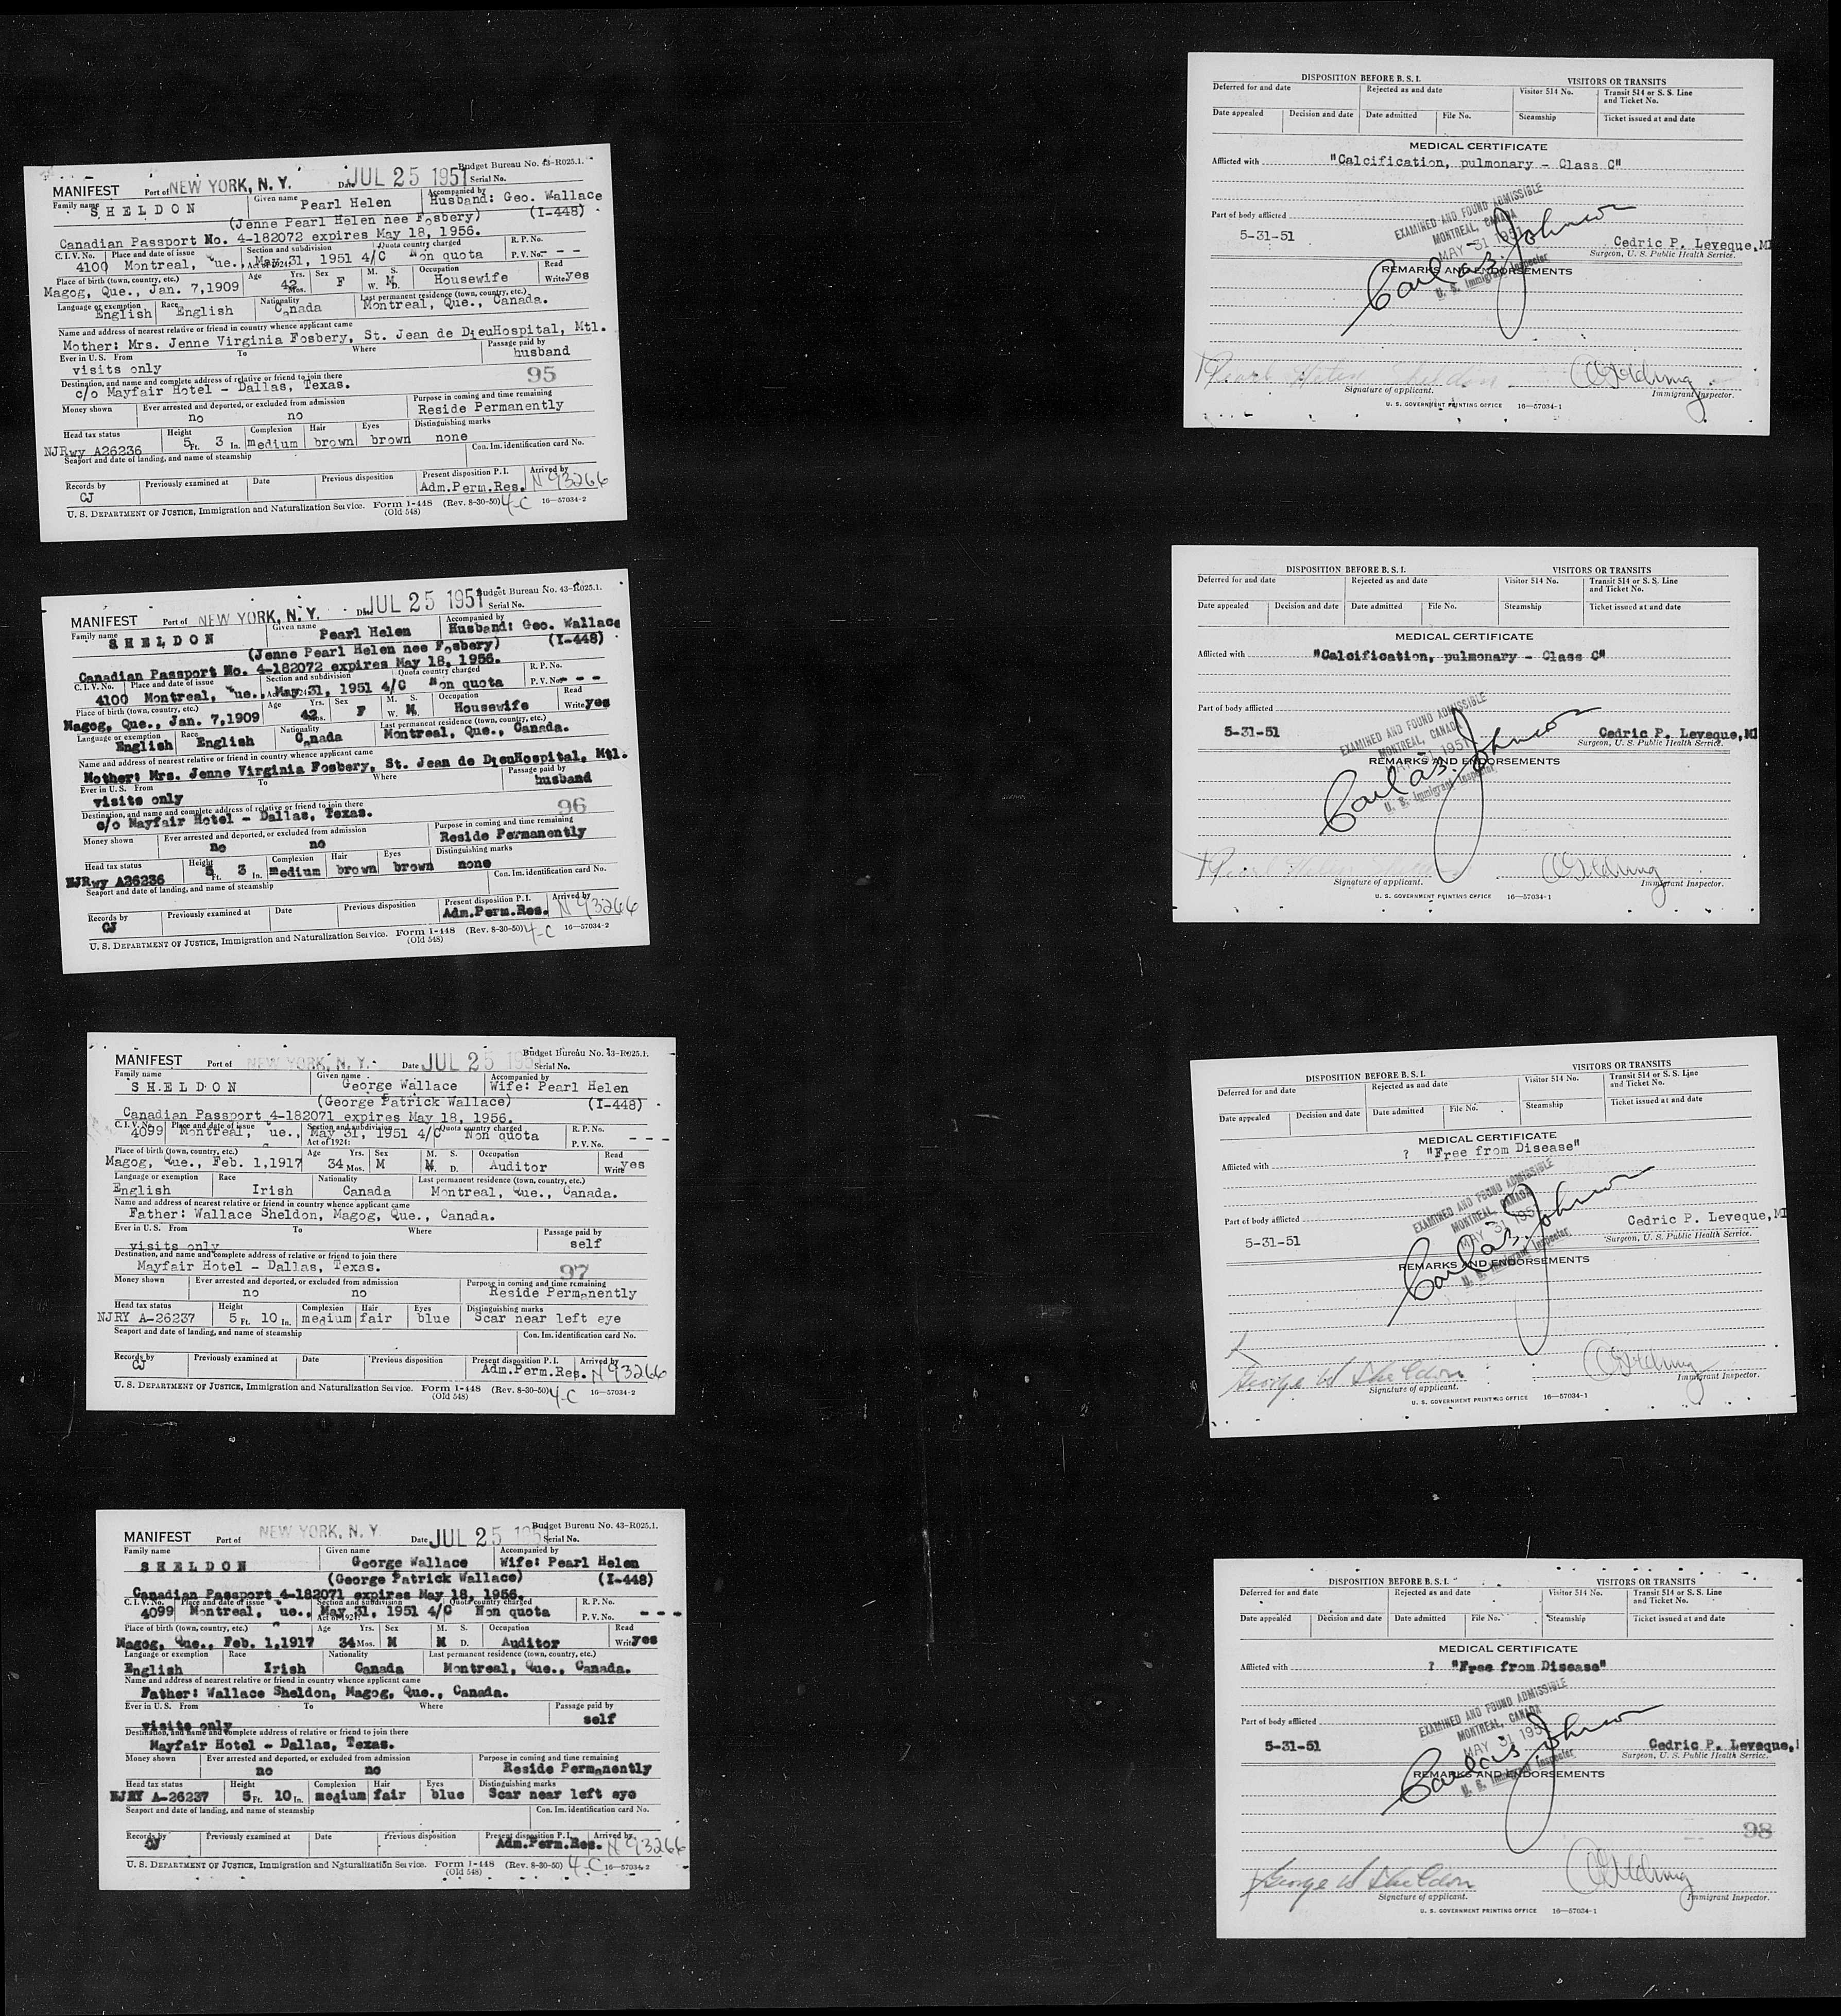 MANIFEST Port of NEW YORK, N. Y. Date JUL 25 1951 Budget Bureau No. 43-R025.1. Serial No.
Family name SHELDON Given name Pearl Helen Accompanied by Husband: Geo. Wallace
(Jenne Pearl Helen nee Fosbery) (I-448)
Canadian Passport No. 4-182072 expires May 18, 1956.
C.I.V. No. 4100 Place and date of issue Montreal, ue., May 31, 1951 Section and subdivision Act of 1924: 4/C Quota country charged Non quota R. P. No. P. V. No. - - -
Place of birth (town, country, etc.) Magog, Que., Jan. 7,1909 Age 42 Yrs. Mos. Sex F M. S. W. D. M Occupation Housewife Read Write yes
Language or exemption English Race English Nationality Canada Last permanent residence (town, country, etc.) Montreal, Que., Canada.
Name and address of nearest relative or friend in country whence applicant came
Mother: Mrs. Jenne Virginia Fosbery, St. Jean de DieuHospital, Mtl.
Ever in U.S. From To Where Passage paid by
visits only husband
Destination, and name and complete address of relative or friend to join there
c/o Mayfair Hotel - Dallas, Texas. 95
Money shown Ever arrested and deported, or excluded from admission Purpose in coming and time remaining
no no Reside Permanently
Head tax status Height Complexion Hair Eyes Distinguishing marks
NJRwy A26236 5 Ft. 3 In. medium brown brown none
Seaport and date of landing, and name of steamship Con. Im. identification card No.
Records by CJ Previously examined at Date Previous disposition Present disposition P. I. Adm.Perm.Res. Arrived by N 93266
U. S. DEPARTMENT OF JUSTICE, Immigration and Naturalization Service. Form I-448 (Rev. 8-30-50) 4-C 16—57034-2
(Old 548)
DISPOSITION BEFORE B. S. I. VISITORS OR TRANSITS
Deferred for and date Rejected as and date Visitor 514 No. Transit 514 or S. S. Line and Ticket No.
Date appealed Decision and date Date admitted File No. Steamship Ticket issued at and date
MEDICAL CERTIFICATE
Afflicted with "Calcification, pulmonary - Class C"
EXAMINED AND FOUND ADMISSIBLE
MONTREAL, CANADA
MAY 31 1951
U. S. Immigrant Inspector
Part of body afflicted
5-31-51 Cedric P. Leveque, MD
Surgeon, U. S. Public Health Service.
REMARKS AND ENDORSEMENTS
Carl as. Johnson
Pearl Helen Sheldon
Signature of applicant. Immigrant Inspector.
U. S. GOVERNMENT PRINTING OFFICE 16—57034-1
MANIFEST Port of NEW YORK, N. Y. Date JUL 25 1951 Budget Bureau No. 43-R025.1. Serial No.
Family name SHELDON Given name Pearl Helen Accompanied by Husband: Geo. Wallace
(Jenne Pearl Helen nee Fosbery) (I-448)
Canadian Passport No. 4-182072 expires May 18, 1956.
C.I.V. No. 4100 Place and date of issue Montreal, ue., May 31, 1951 Section and subdivision Act of 1924: 4/C Quota country charged Non quota R. P. No. P. V. No. - - -
Place of birth (town, country, etc.) Magog, Que., Jan. 7,1909 Age 42 Yrs. Mos. Sex F M. S. W. D. M Occupation Housewife Read Write yes
Language or exemption English Race English Nationality Canada Last permanent residence (town, country, etc.) Montreal, Que., Canada.
Name and address of nearest relative or friend in country whence applicant came
Mother: Mrs. Jenne Virginia Fosbery, St. Jean de DieuHospital, Mtl.
Ever in U.S. From To Where Passage paid by
visits only husband
Destination, and name and complete address of relative or friend to join there
c/o Mayfair Hotel - Dallas, Texas. 96
Money shown Ever arrested and deported, or excluded from admission Purpose in coming and time remaining
no no Reside Permanently
Head tax status Height Complexion Hair Eyes Distinguishing marks
NJRwy A26236 5 Ft. 3 In. medium brown brown none
Seaport and date of landing, and name of steamship Con. Im. identification card No.
Records by CJ Previously examined at Date Previous disposition Present disposition P. I. Adm.Perm.Res. Arrived by N 93266
U. S. DEPARTMENT OF JUSTICE, Immigration and Naturalization Service. Form I-448 (Rev. 8-30-50) 4-C 16—57034-2
(Old 548)
DISPOSITION BEFORE B. S. I. VISITORS OR TRANSITS
Deferred for and date Rejected as and date Visitor 514 No. Transit 514 or S. S. Line and Ticket No.
Date appealed Decision and date Date admitted File No. Steamship Ticket issued at and date
MEDICAL CERTIFICATE
Afflicted with "Calcification, pulmonary - Class C"
EXAMINED AND FOUND ADMISSIBLE
MONTREAL, CANADA
MAY 31 1951
U. S. Immigrant Inspector
Part of body afflicted
5-31-51 Cedric P. Leveque, MD
Surgeon, U. S. Public Health Service.
REMARKS AND ENDORSEMENTS
Carl as. Johnson
Pearl Helen
Signature of applicant. Immigrant Inspector.
U. S. GOVERNMENT PRINTING OFFICE 16—57034-1
MANIFEST Port of NEW YORK, N. Y. Date JUL 25 1951 Budget Bureau No. 43-R025.1. Serial No.
Family name SHELDON Given name George Wallace Accompanied by Wife: Pearl Helen
(George Patrick Wallace) (I-448)
Canadian Passport 4-182071 expires May 18, 1956.
C.I.V. No. 4099 Place and date of issue Montreal, ue., May 31, 1951 Section and subdivision Act of 1924: 4/C Quota country charged Non quota R. P. No. P. V. No. - - -
Place of birth (town, country, etc.) Magog, Que., Feb. 1,1917 Age 34 Yrs. Mos. Sex M M. S. W. D. M Occupation Auditor Read Write yes
Language or exemption English Race Irish Nationality Canada Last permanent residence (town, country, etc.) Montreal, Que., Canada.
Name and address of nearest relative or friend in country whence applicant came
Father: Wallace Sheldon, Magog, Que., Canada.
Ever in U.S. From To Where Passage paid by
visits only self
Destination, and name and complete address of relative or friend to join there
Mayfair Hotel - Dallas, Texas. 97
Money shown Ever arrested and deported, or excluded from admission Purpose in coming and time remaining
no no Reside Permanently
Head tax status Height Complexion Hair Eyes Distinguishing marks
NJRY A-26237 5 Ft. 10 In. medium fair blue Scar near left eye
Seaport and date of landing, and name of steamship Con. Im. identification card No.
Records by CJ Previously examined at Date Previous disposition Present disposition P. I. Adm.Perm.Res. Arrived by N 93266
U. S. DEPARTMENT OF JUSTICE, Immigration and Naturalization Service. Form I-448 (Rev. 8-30-50) 4-C 16—57034-2
(Old 548)
DISPOSITION BEFORE B. S. I. VISITORS OR TRANSITS
Deferred for and date Rejected as and date Visitor 514 No. Transit 514 or S. S. Line and Ticket No.
Date appealed Decision and date Date admitted File No. Steamship Ticket issued at and date
MEDICAL CERTIFICATE
Afflicted with ? "Free from Disease"
EXAMINED AND FOUND ADMISSIBLE
MONTREAL, CANADA
MAY 31 1951
U. S. Immigrant Inspector
Part of body afflicted
5-31-51 Cedric P. Leveque, MD
Surgeon, U. S. Public Health Service.
REMARKS AND ENDORSEMENTS
Carl as. Johnson
George W Sheldon
Signature of applicant. Immigrant Inspector.
U. S. GOVERNMENT PRINTING OFFICE 16—57034-1
MANIFEST Port of NEW YORK, N. Y. Date JUL 25 1951 Budget Bureau No. 43-R025.1. Serial No.
Family name SHELDON Given name George Wallace Accompanied by Wife: Pearl Helen
(George Patrick Wallace) (I-448)
Canadian Passport 4-182071 expires May 18, 1956.
C.I.V. No. 4099 Place and date of issue Montreal, ue., May 31, 1951 Section and subdivision Act of 1924: 4/C Quota country charged Non quota R. P. No. P. V. No. - - -
Place of birth (town, country, etc.) Magog, Que., Feb. 1,1917 Age 34 Yrs. Mos. Sex M M. S. W. D. M Occupation Auditor Read Write yes
Language or exemption English Race Irish Nationality Canada Last permanent residence (town, country, etc.) Montreal, Que., Canada.
Name and address of nearest relative or friend in country whence applicant came
Father: Wallace Sheldon, Magog, Que., Canada.
Ever in U.S. From To Where Passage paid by
visits only self
Destination, and name and complete address of relative or friend to join there
Mayfair Hotel - Dallas, Texas.
Money shown Ever arrested and deported, or excluded from admission Purpose in coming and time remaining
no no Reside Permanently
Head tax status Height Complexion Hair Eyes Distinguishing marks
NJRY A-26237 5 Ft. 10 In. medium fair blue Scar near left eye
Seaport and date of landing, and name of steamship Con. Im. identification card No.
Records by CJ Previously examined at Date Previous disposition Present disposition P. I. Adm.Perm.Res. Arrived by N 93266
U. S. DEPARTMENT OF JUSTICE, Immigration and Naturalization Service. Form I-448 (Rev. 8-30-50) 4-C 16—57034-2
(Old 548)
DISPOSITION BEFORE B. S. I. VISITORS OR TRANSITS
Deferred for and date Rejected as and date Visitor 514 No. Transit 514 or S. S. Line and Ticket No.
Date appealed Decision and date Date admitted File No. Steamship Ticket issued at and date
MEDICAL CERTIFICATE
Afflicted with ? "Free from Disease"
EXAMINED AND FOUND ADMISSIBLE
MONTREAL, CANADA
MAY 31 1951
U. S. Immigrant Inspector
Part of body afflicted
5-31-51 Cedric P. Leveque,
Surgeon, U. S. Public Health Service.
REMARKS AND ENDORSEMENTS
Carl as. Johnson
98
George W Sheldon
Signature of applicant. Immigrant Inspector.
U. S. GOVERNMENT PRINTING OFFICE 16—57034-1